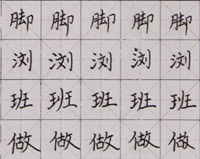 脚脚脚脚脚
浏浏浏浏浏
班班班班班
做做做做做